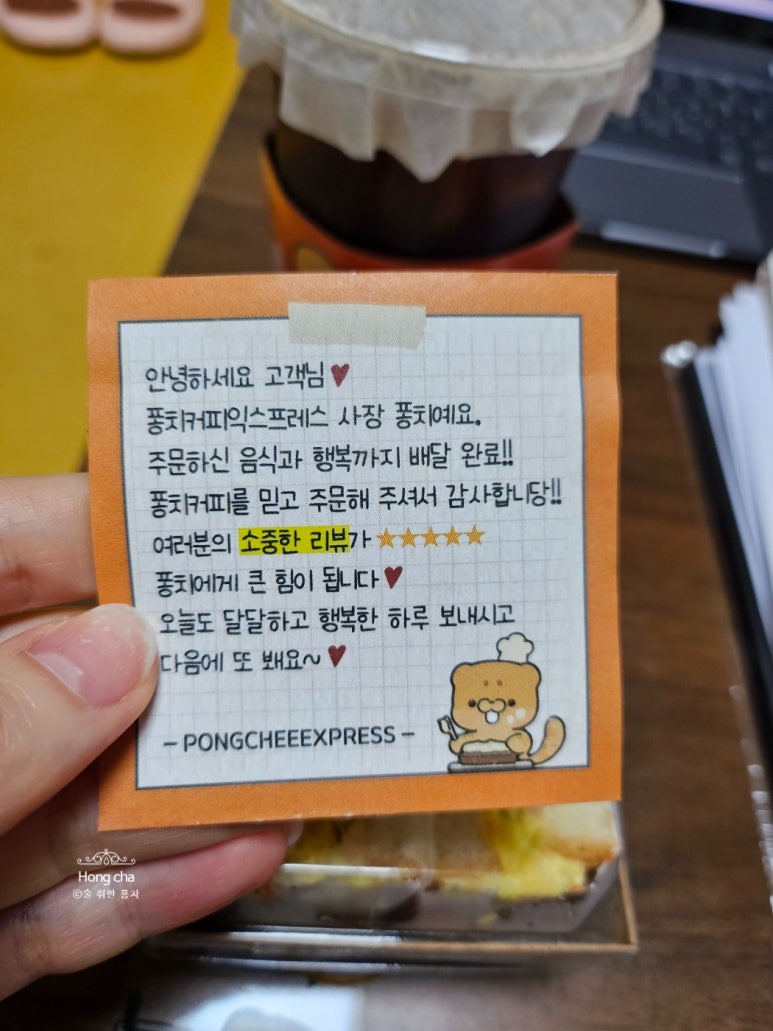 안녕하세요 고객님♥
퐁치커피익스프레스 사장 퐁치예요.
주문하신 음식과 행복까지 배달 완료!!
퐁치커피를 믿고 주문해 주셔서 감사합니당!!
여러분의 소중한 리뷰가 ★★★★★
퐁치에게 큰 힘이 됩니다♥
오늘도 달달하고 행복한 하루 보내시고
다음에 또 봬요~♥
– PONGCHEEEXPRESS –
Hong cha
©술 취한 홍차